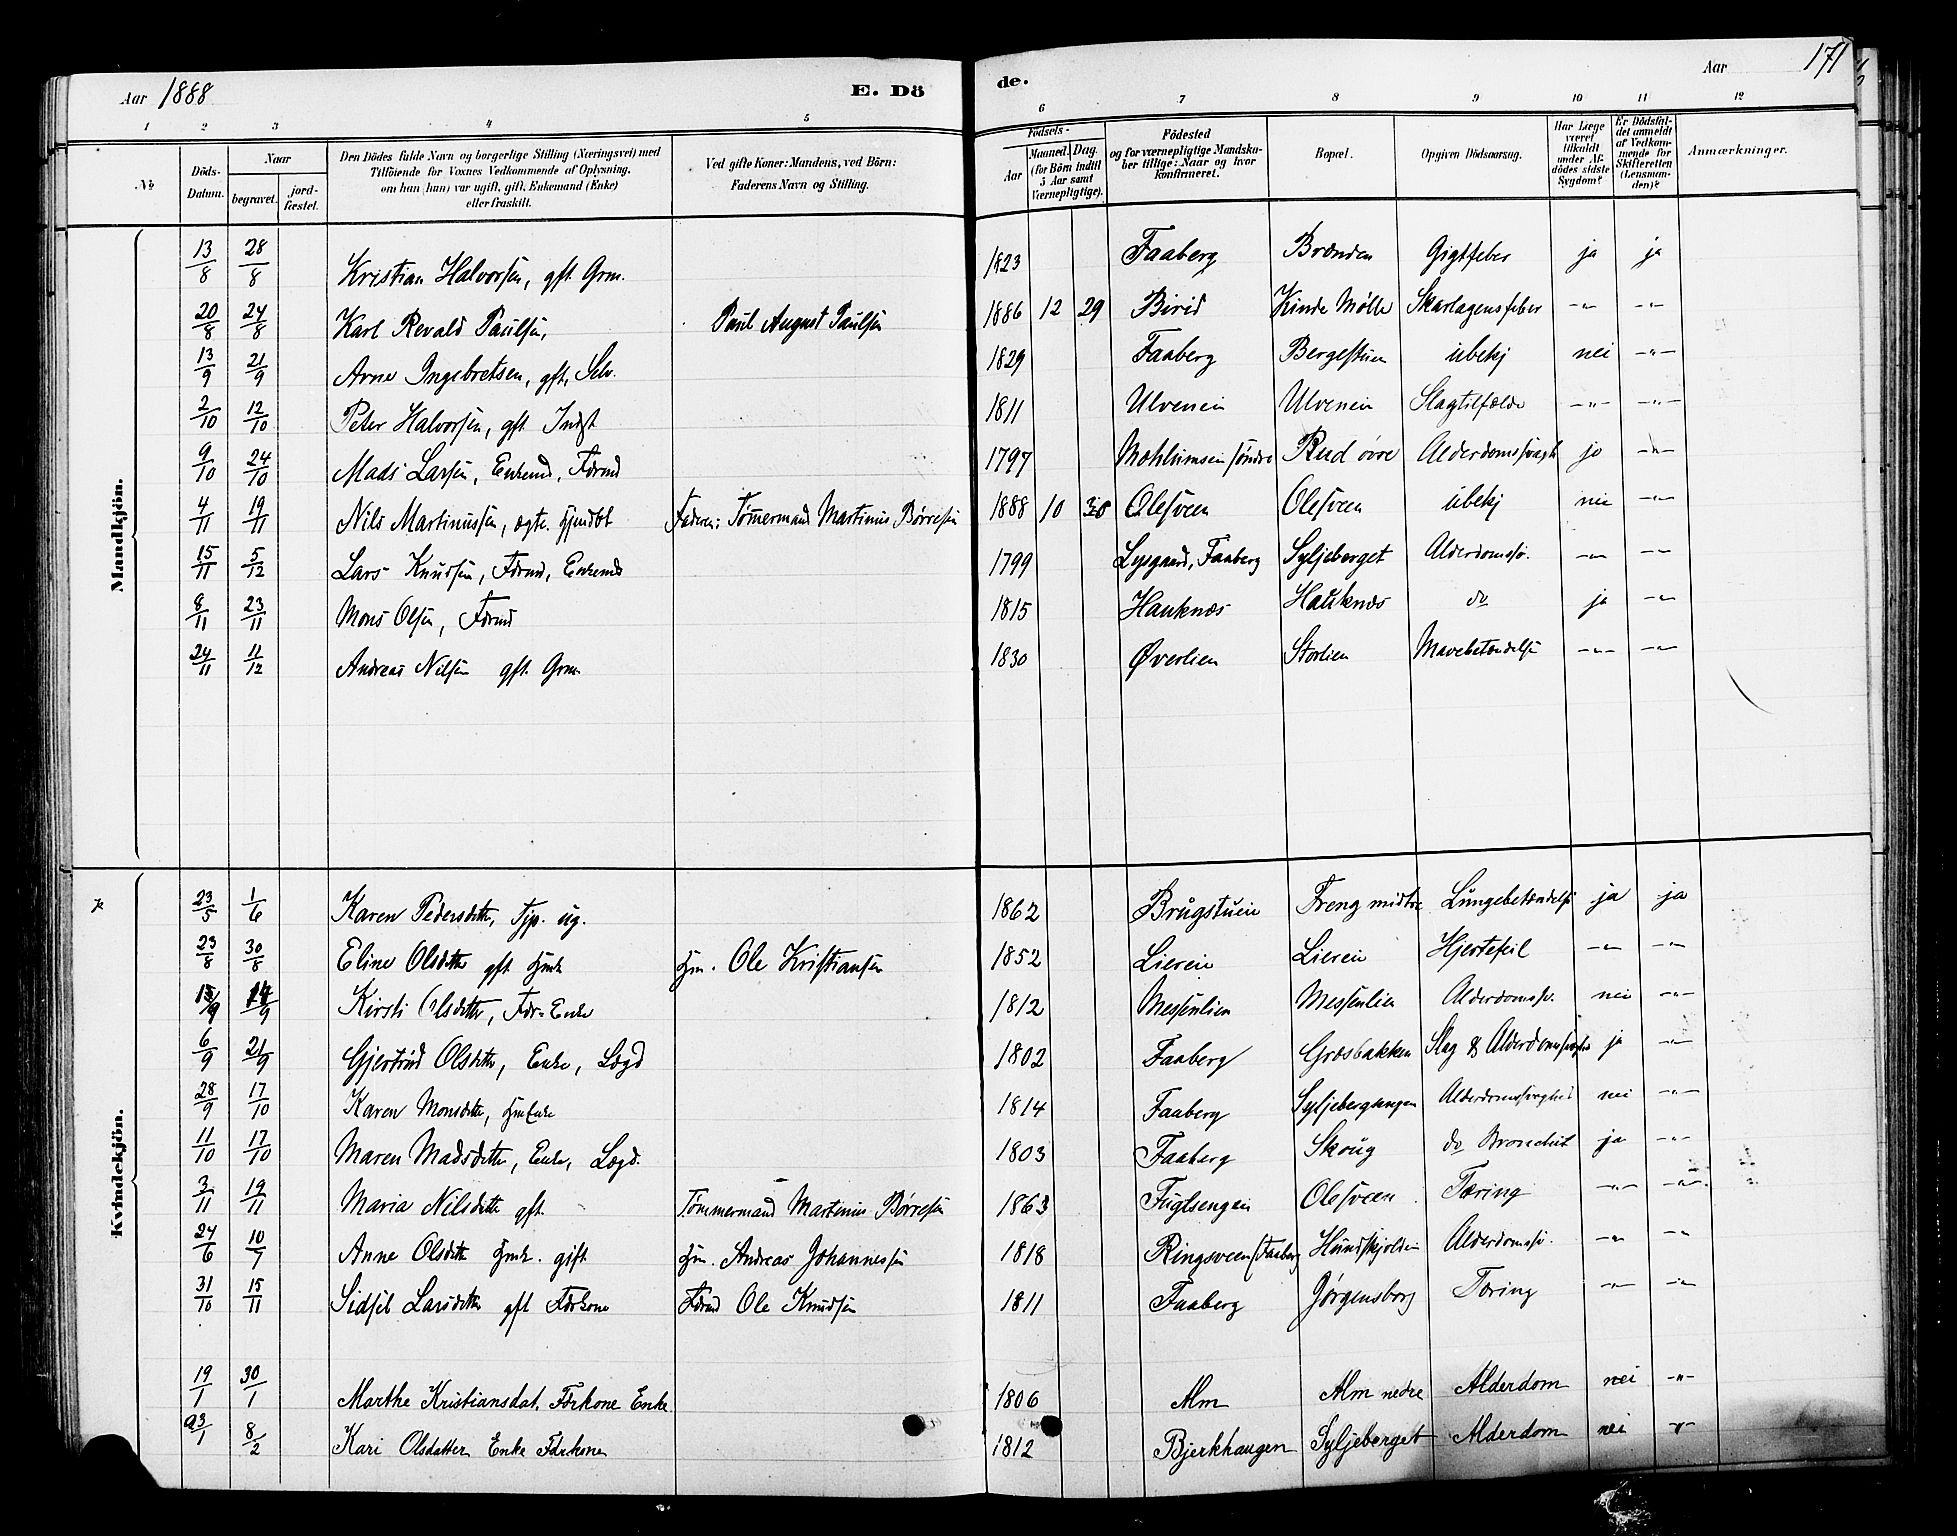 Aar 1888 E. Dö de. Aar 171
1 2 3 4 5 6 7 8 9 10 11 12
No Döds-Datum. Naar begravet. jord-fæstet. Den Dödes fulde Navn og borgerlige Stilling (Næringsvei) med Tilföiende for Voxnes Vedkommende af Oplysning, om han (hun) var ugift, gift, Enkemand (Enke) eller fraskilt. Ved gifte Koner: Mandens, ved Börn: Faderens Navn og Stilling. Födsels- Aar Maaned. Dag. (for Börn indtil 5 Aar samt Værnepligtige). Födested og for værnepligtige Mandskaber tillige: Naar og hvor konfirmeret. Bopæl. Opgiven Dödsaarsag. Har Læge været tilkaldt under Afdödes sidste Sygdom? Er Dödsfaldet anmeldt af Vedkommende for Skifteretten (Lensmanden)? Anmærkninger.
Mandkjön.
13/8 28/8 Kristian Halvorsen, gft Grm. 1823 Faaberg Brænden Gigtfeber ja ja
20/8 24/8 Karl Revald Paulsen, Paul August Paulsen 1886 12 29 Birid Kinde Mølle Skarlagensfeber -"- -"-
13/9 21/9 Arne Ingebretsen, gft, Selv. 1829 Faaberg Bergestuen ubekj nei -"-
2/10 12/10 Peter Halvorsen, gft Indst 1811 Ulvenein Ulvenein Slagtilfælde -"- -"-
9/10 24/10 Mads Larsen, Enkemd, Fdrmd 1797 søndre Rud øvre Alderdomssvagh ja -"-
4/11 19/11 Nils Martinussen, ægte. hjemdbt Faderen: Tømmermand Martinus Børresen 1888 10 Olesveen Olesveen ubekj nei -"-
15/11 5/12 Lars Knudsen, Fdrmd, Enkemd 1799 Lysgaard, Faaberg Syljeberget Alderdomssv. -"- -"-
8/11 23/11 Mons Olsen, Fdrmd 1815 Hauknæs Hauknæs do ja -"-
24/11 11/12 Andreas Nilsen gft Grm. 1830 Øverlien Storlien Mavebetændelse -"- -"-
Kvindekjön.
23/5 1/6 Karen Pedersdtt, Tjp. ug. 1862 Brugstuen Freng midtre Lungebetændelse ja ja
23/8 30/8 Eline Olsdtt gft Hmk Hm. Ole Kristiansen 1852 Liereie Liereie Hjertefeil -"- -"-
15/9 14/9 Kirsti Olsdtt, Fdr-Enke 1812 Messenlien Messenlien Alderdomssv. nei -"-
6/9 21/9 Gjertrud Olsdtt, Enke, Lægd 1802 Faaberg Græsbakken Slag & Alderdomssvaghd ja -"-
28/9 17/10 Karen Monsdtt, HmEnke 1814 Faaberg Syljeberghagen Alderdomssvaghed nei -"-
11/10 17/10 Maren Madsdtt, Enke, Lægd. 1803 Faaberg Skoug do Bronchit ja -"-
3/11 19/11 Maria Nilsdtt gft. Tømmermand Martinus Børresen 1863 Fuglsengen Olesveen Tæring -"- -"-
24/6 10/7 Anne Olsdtt Hmk. gift Hm. Andreas Johannessen 1818 Ringsveen (Faaberg Hundskjolden Alderdomssv. -"- -"-
31/10 15/11 Sidsel Larsdtt gft Fdrkone Fdrmd Ole Knudsen 1811 Faaberg Jørgensborg Tæring -"- -"-
19/1 30/1 Marthe Kristiansdat. Fdrkone Enke 1806 Alm Alm nedre Alderdom nei -"-
23/1 8/2 Kari Olsdatter Enke Fdrkone 1812 Bjerkhaugen Syljeberget Alderdom nei -"-